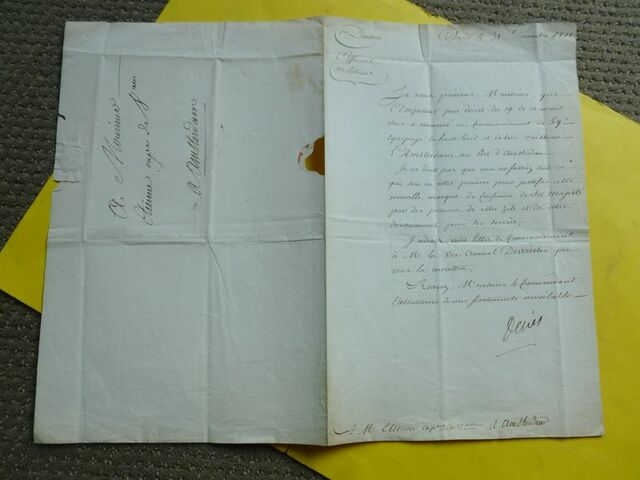 A Monsieur
Etienne capne de Vau
A Amsterdam
Division
Officiers
militaires
Paris le 31 Décembre 1811
Je vous préviens, Monsieur, que
l'Empereur par décret du 19 de ce mois
vous a nommé au Commandement du 59e
Equipage de haut-bord et de son vaisseau
l'Amsterdam au Port d'Amsterdam.
Je ne doute pas que vous ne fassiez tout ce
qui sera en votre pouvoir pour justifier cette
nouvelle marque de Confiance de Sa Majesté
par des preuves de votre zèle et de votre
dévouement pour son service.
J'adresse votre lettre de Commandement
à M. le Vice-Amiral Dewinter pour
vous la remettre.
Recevez, Monsieur le Commandant,
l'assurance de mes sentimens inviolables
Decrès
A M. Etienne capne de vau à Amsterdam